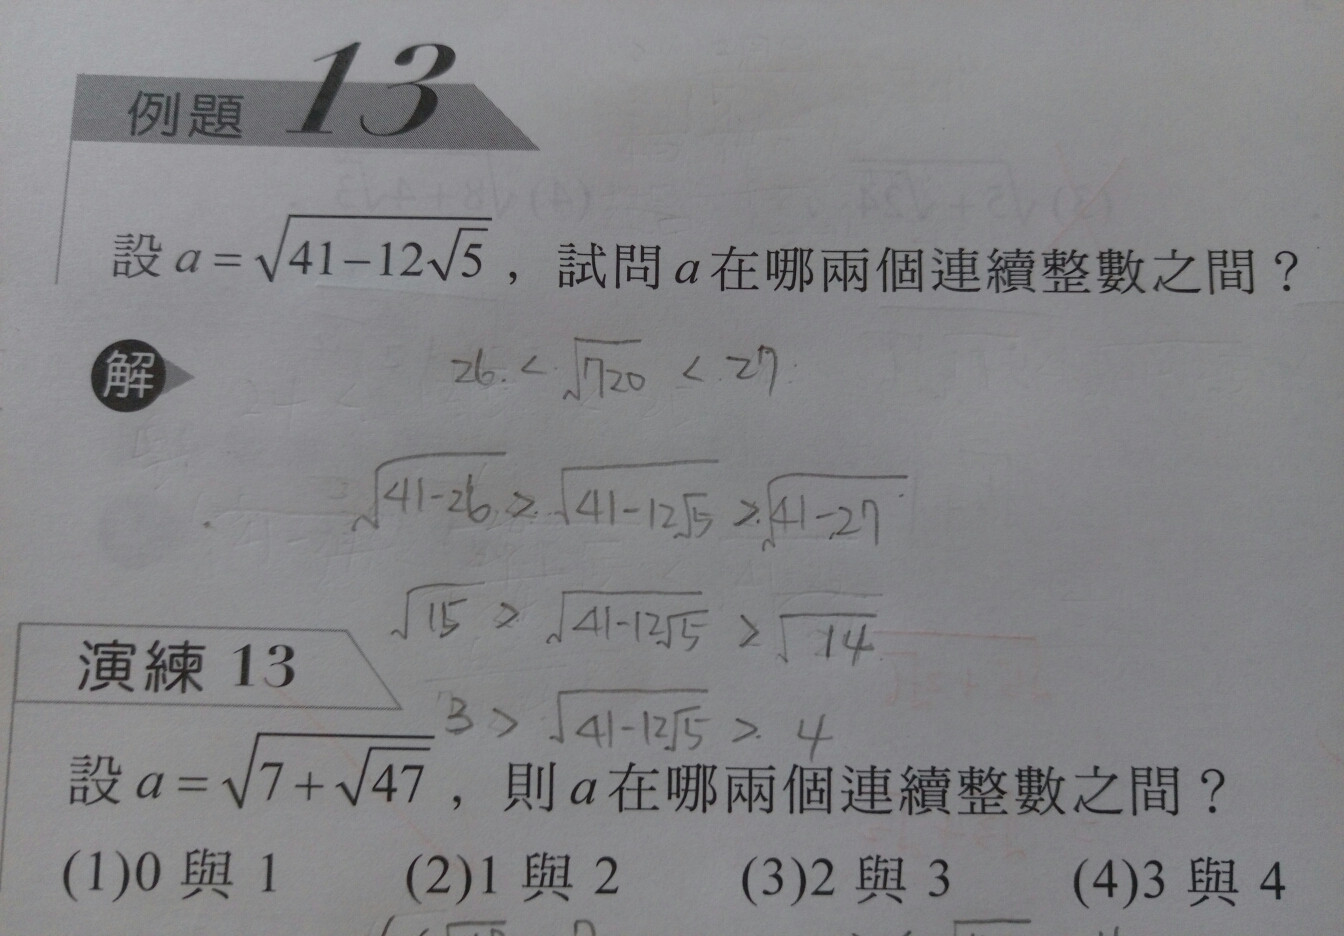 例題 13
設 a = √(41-12√5) , 試問 a 在哪兩個連續整數之間?
解
26 < √720 < 27
√(41-26) > √(41-12√5) > √(41-27)
√15 > √(41-12√5) > √14
3 > √(41-12√5) > 4
演練 13
設 a = √(7+√47) , 則 a 在哪兩個連續整數之間?
(1)0 與 1 (2)1 與 2 (3)2 與 3 (4)3 與 4